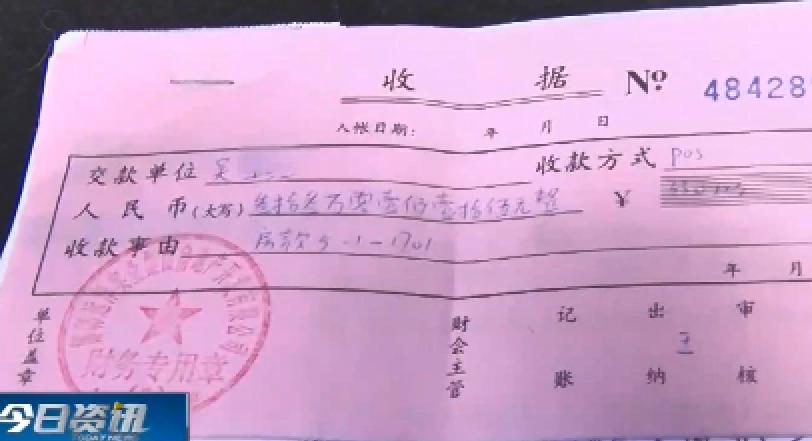 收 据 Nº 48428
入帐日期: 年 月 日
交款单位 吴 收款方式 pos
人民币(大写) 叁拾叁万零壹佰壹拾伍元整 ¥
收款事由 房款 5-1-1701
年 月
单位盖章 财会主管 记账 出纳 王 审核
财务专用章
今日资讯
TODAY NEWS